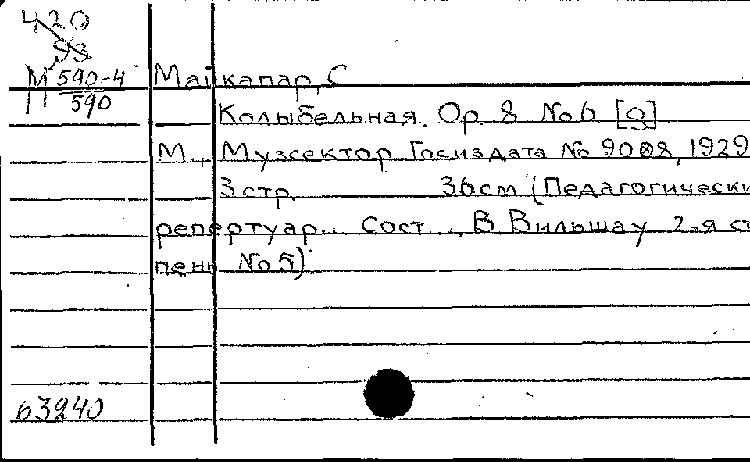 420
93
М 590-4
590
Майкапар, С
Колыбельная. Ор. 8 №6 [g]
М., Музсектор Госиздата № 9008, 1929
3 стр. 36см (Педагогически
репертуар... Сост..., В Вильшау 2-я ст
пень №5)
63240